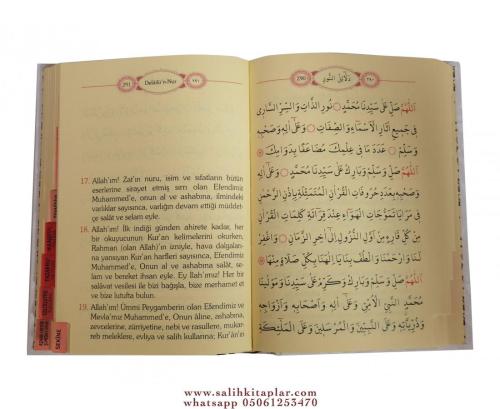 290 دَلَائِلُ النُّورِ ٢٩٠
اَللّٰهُمَّ صَلِّ عَلٰى سَيِّدِنَا مُحَمَّدٍ نُورِ الذَّاتِ وَالسِّرِّ السَّارِى
فِى جَمِيعِ اٰثَارِ الْاَسْمَاءِ وَالصِّفَاتِ وَعَلٰى اٰلِهِ وَصَحْبِهِ
وَسَلِّمْ عَدَدَ مَا فِى عِلْمِكَ مُضَاعَفًا بِدَوَامِكَ
اَللّٰهُمَّ صَلِّ وَسَلِّمْ وَبَارِكْ عَلٰى سَيِّدِنَا مُحَمَّدٍ وَعَلٰى اٰلِهِ
وَصَحْبِهِ بِعَدَدِ حُرُوفَاتِ الْقُرْاٰنِ الْمُتَمَثِّلَةِ بِاِذْنِ الرَّحْمٰنِ
فِى مَرَايَا تَمَوُّجَاتِ الْهَوَاءِ عِنْدَ قِرَائَةِ كَلِمَاتِ الْقُرْاٰنِ
مِنْ كُلِّ قَارِءٍ مِنْ اَوَّلِ النُّزُولِ اِلٰى اٰخِرِ الزَّمَانِ وَاغْفِرْ
لَنَا وَارْحَمْنَا وَالْطُفْ بِنَا يَا اِلٰهَنَا بِكُلِّ صَلَاةٍ مِنْهَا
اَللّٰهُمَّ صَلِّ وَسَلِّمْ وَبَارِكْ وَكَرِّمْ عَلٰى سَيِّدِنَا وَمَوْلٰينَا
مُحَمَّدٍ النَّبِىِّ الْاُمِّىِّ وَعَلٰى اٰلِهِ وَاَصْحَابِهِ وَاَزْوَاجِهِ
وَذُرِّيَّاتِهِ وَعَلَى النَّبِيِّينَ وَالْمُرْسَلِينَ وَعَلَى الْمَلٰئِكَةِ
291 Delâilü'n-Nur ٢٩١
17. Allah'ım! Zat'ın nuru, isim ve sıfatların bütün
eserlerine sirayet etmiş sırrı olan Efendimiz
Muhammed'e, onun al ve ashabına, ilmindeki
varlıklar sayısınca, varlığın devam ettiği müddet-
çe salât ve selam eyle.
18. Allah'ım! İlk indiği günden ahirete kadar, her
bir okuyucunun Kur'an kelimelerini okurken,
Rahman (olan Allah')ın izniyle, hava dalgaları-
na yansıyan Kur'an harfleri sayısınca, Efendimiz
Muhammed'e, Onun al ve ashabına salât, se-
lam ve bereket ihsan eyle. Ey İlahımız! Her bir
salâvat vesilesi ile bizi bağışla, bize merhamet et
ve bize lutufta bulun.
19. Allah'ım! Ümmi Peygamberin olan Efendimiz ve
Mevla'mız Muhammed'e, Onun âline, ashabına,
zevcelerine, zürriyetine, nebi ve rasullere, mukar-
reb meleklere, evliya ve salih kullarına; Kur'ân'ın
SEKİNE
www.salihkitaplar.com
whatsapp 05061253470